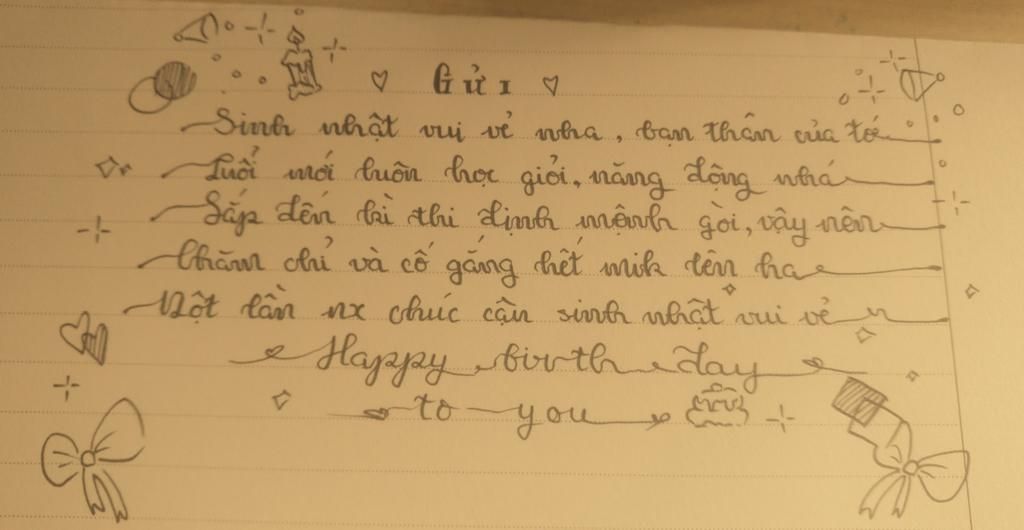 Gửi
Sinh nhật vui vẻ nha, bạn thân của tớ
Tuổi mới luôn học giỏi, năng động nhá
Sắp đến kì thi định mệnh gòi, vậy nên
Chăm chỉ và cố gắng hết mik lên ha
Một lần nx chúc cận sinh nhật vui vẻ
Happy birth day
to you